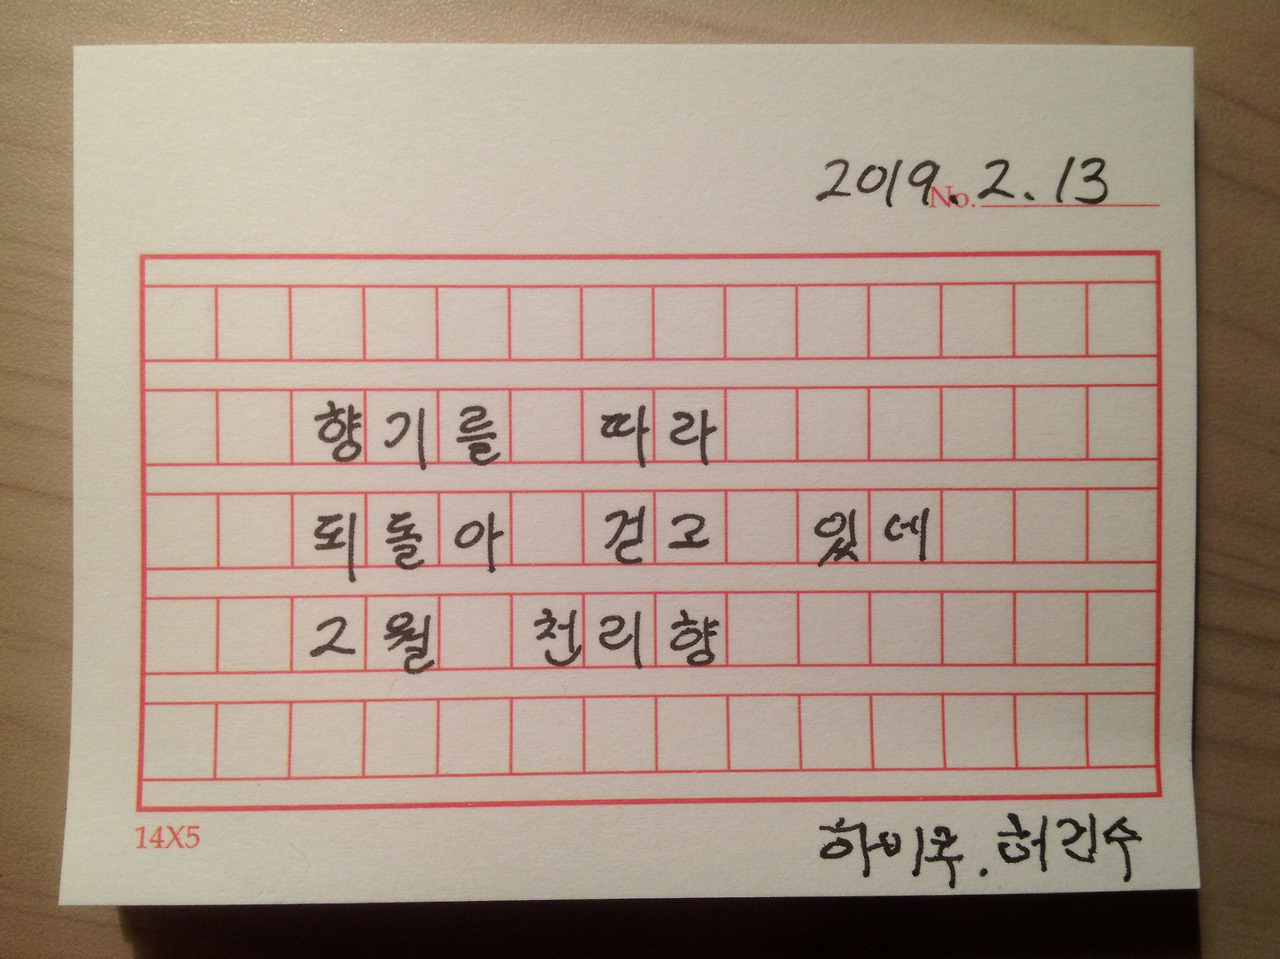 2019. 2. 13
No.
향기를 따라
되돌아 걷고 있네
2월 천리향
14X5
하이쿠. 허진수